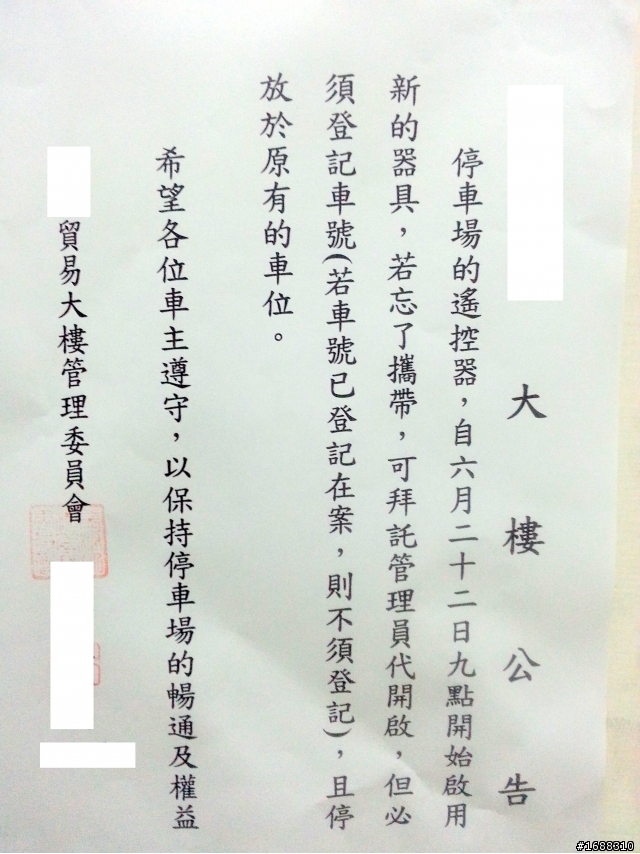 大樓公告
停車場的遙控器，自六月二十二日九點開始啟用
新的器具，若忘了攜帶，可拜託管理員代開啟，但必
須登記車號(若車號已登記在案，則不須登記)，且停
放於原有的車位。
希望各位車主遵守，以保持停車場的暢通及權益
貿易大樓管理委員會
#1688310